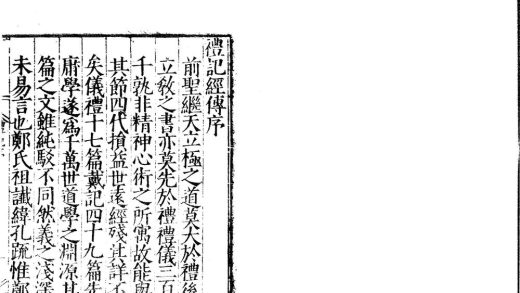 禮記經傳序
前聖繼天立極之道莫大於禮後
立敎之書亦莫先於禮禮儀三百
千孰非精神心術之所寓故能與
其節四代損益世遠經殘其詳不
矣儀禮十七篇戴記四十九篇先
庸學遂爲千萬世道學之淵源其
篇之文雖純駁不同然義之淺深
未易言也鄭氏祖讖緯孔疏惟鄭